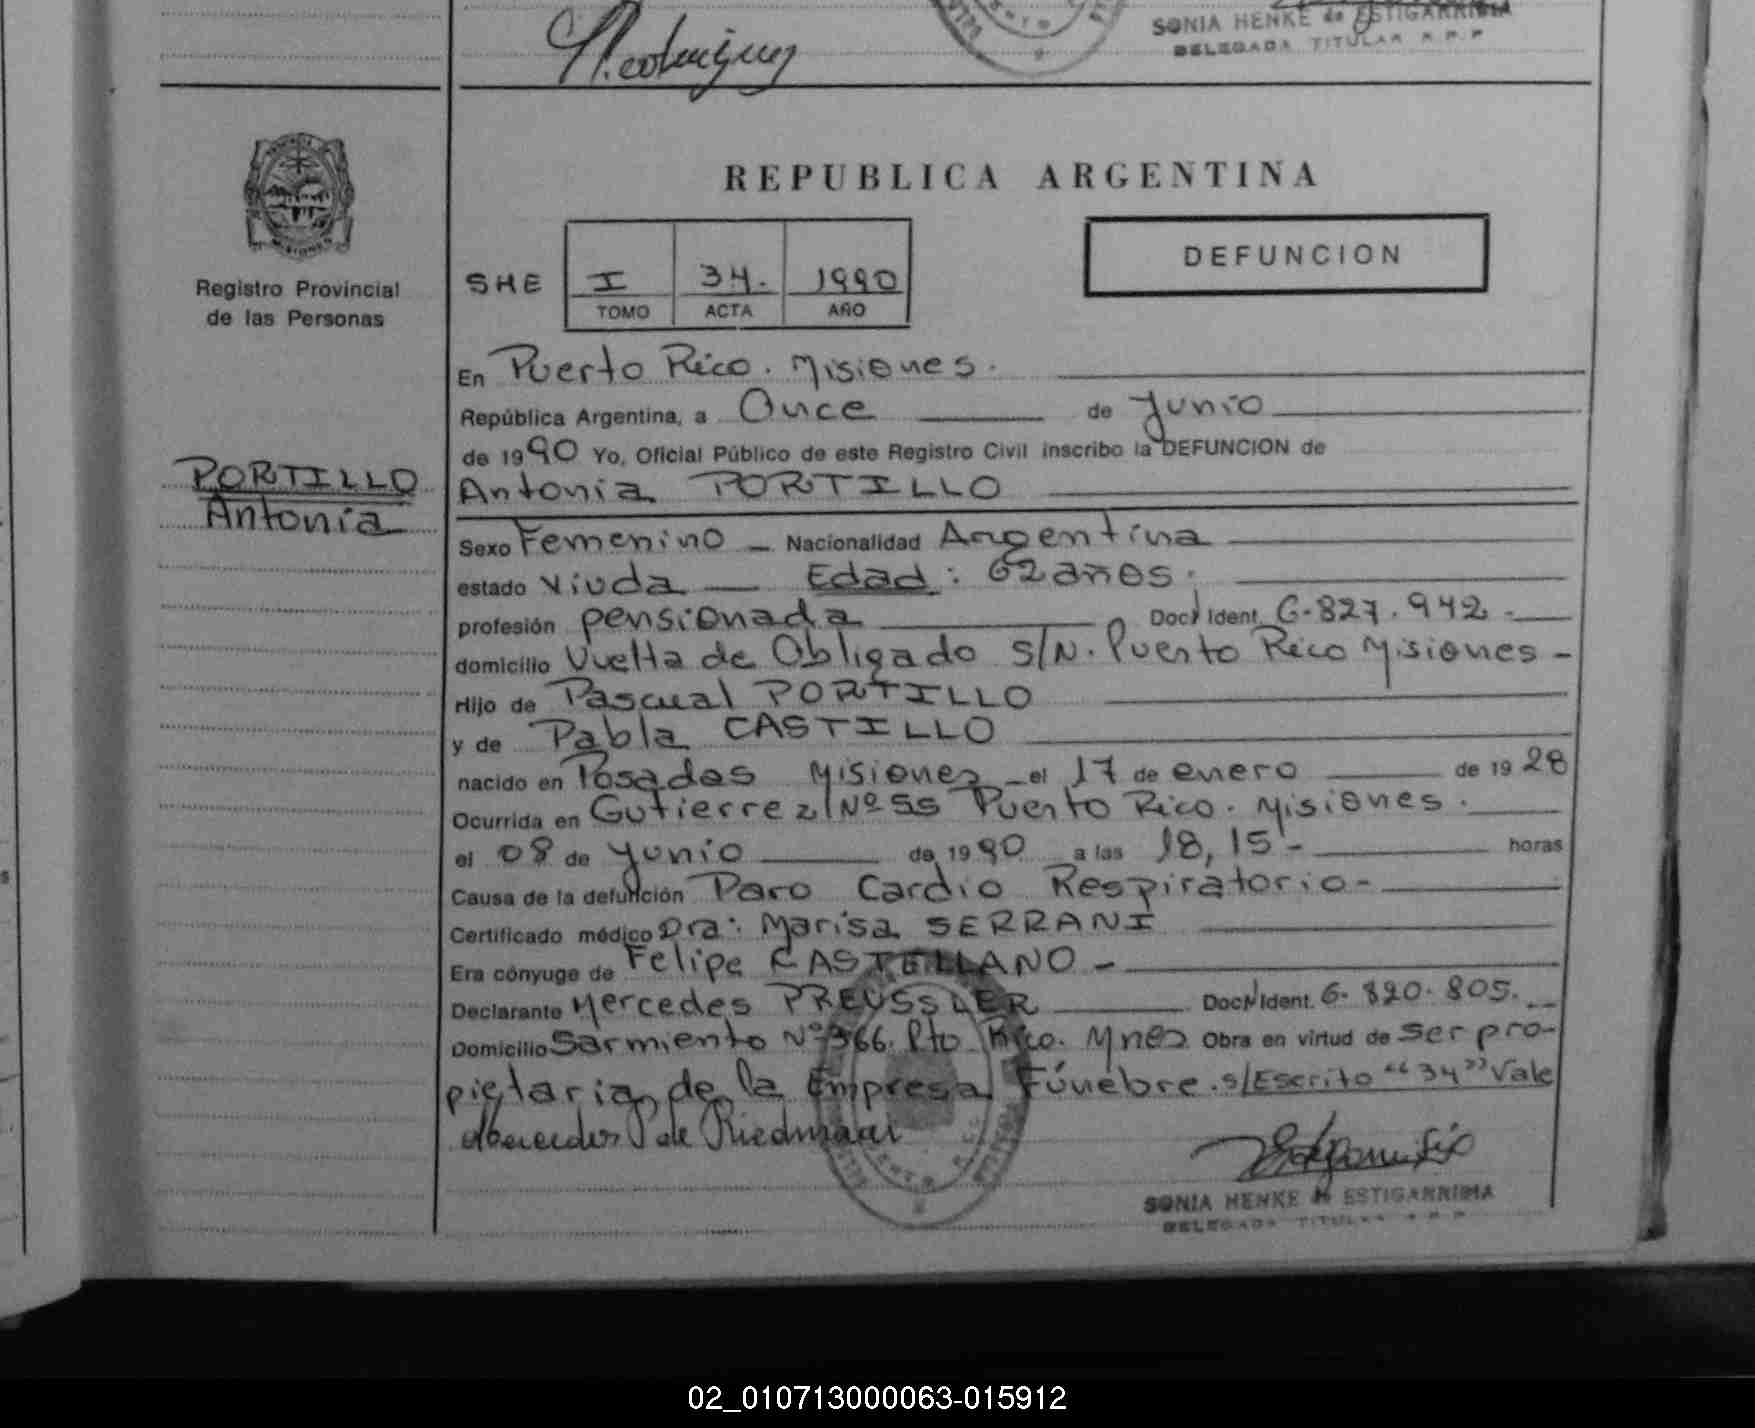 SONIA HENKE de ESTIGARRIBIA
DELEGADA TITULAR R.P.P
REPUBLICA ARGENTINA
DEFUNCION
SHE I 34. 1990
TOMO ACTA AÑO
Registro Provincial
de las Personas
PORTILLO
Antonia
En Puerto Rico. Misiones.
República Argentina, a Once de Junio
de 1990 Yo, Oficial Público de este Registro Civil inscribo la DEFUNCION de
Antonia PORTILLO
Sexo Femenino Nacionalidad Argentina
estado Viuda Edad: 62 años.
profesión pensionada Doc. Ident. 6.827.942.
domicilio Vuelta de Obligado S/N. Puerto Rico Misiones
Hijo de Pascual PORTILLO
y de Pabla CASTILLO
nacido en Posadas Misiones el 17 de enero de 1928
Ocurrida en Gutierrez Nº 55 Puerto Rico. Misiones.
el 08 de Junio de 1990 a las 18,15 horas
Causa de la defunción Paro Cardio Respiratorio-
Certificado médico Dra: Marisa SERRANI
Era cónyuge de Felipe CASTELLANO -
Declarante Mercedes PREUSSLER Doc. Ident. 6.820.805.
Domicilio Sarmiento Nº 366. Pto Rico. Mnes Obra en virtud de ser pro-
pietaria de la Empresa Fúnebre. s/Escrito "34" Vale
Mercedes P de Riedmaier
SONIA HENKE de ESTIGARRIBIA
DELEGADA TITULAR R.P.P
02_010713000063-015912